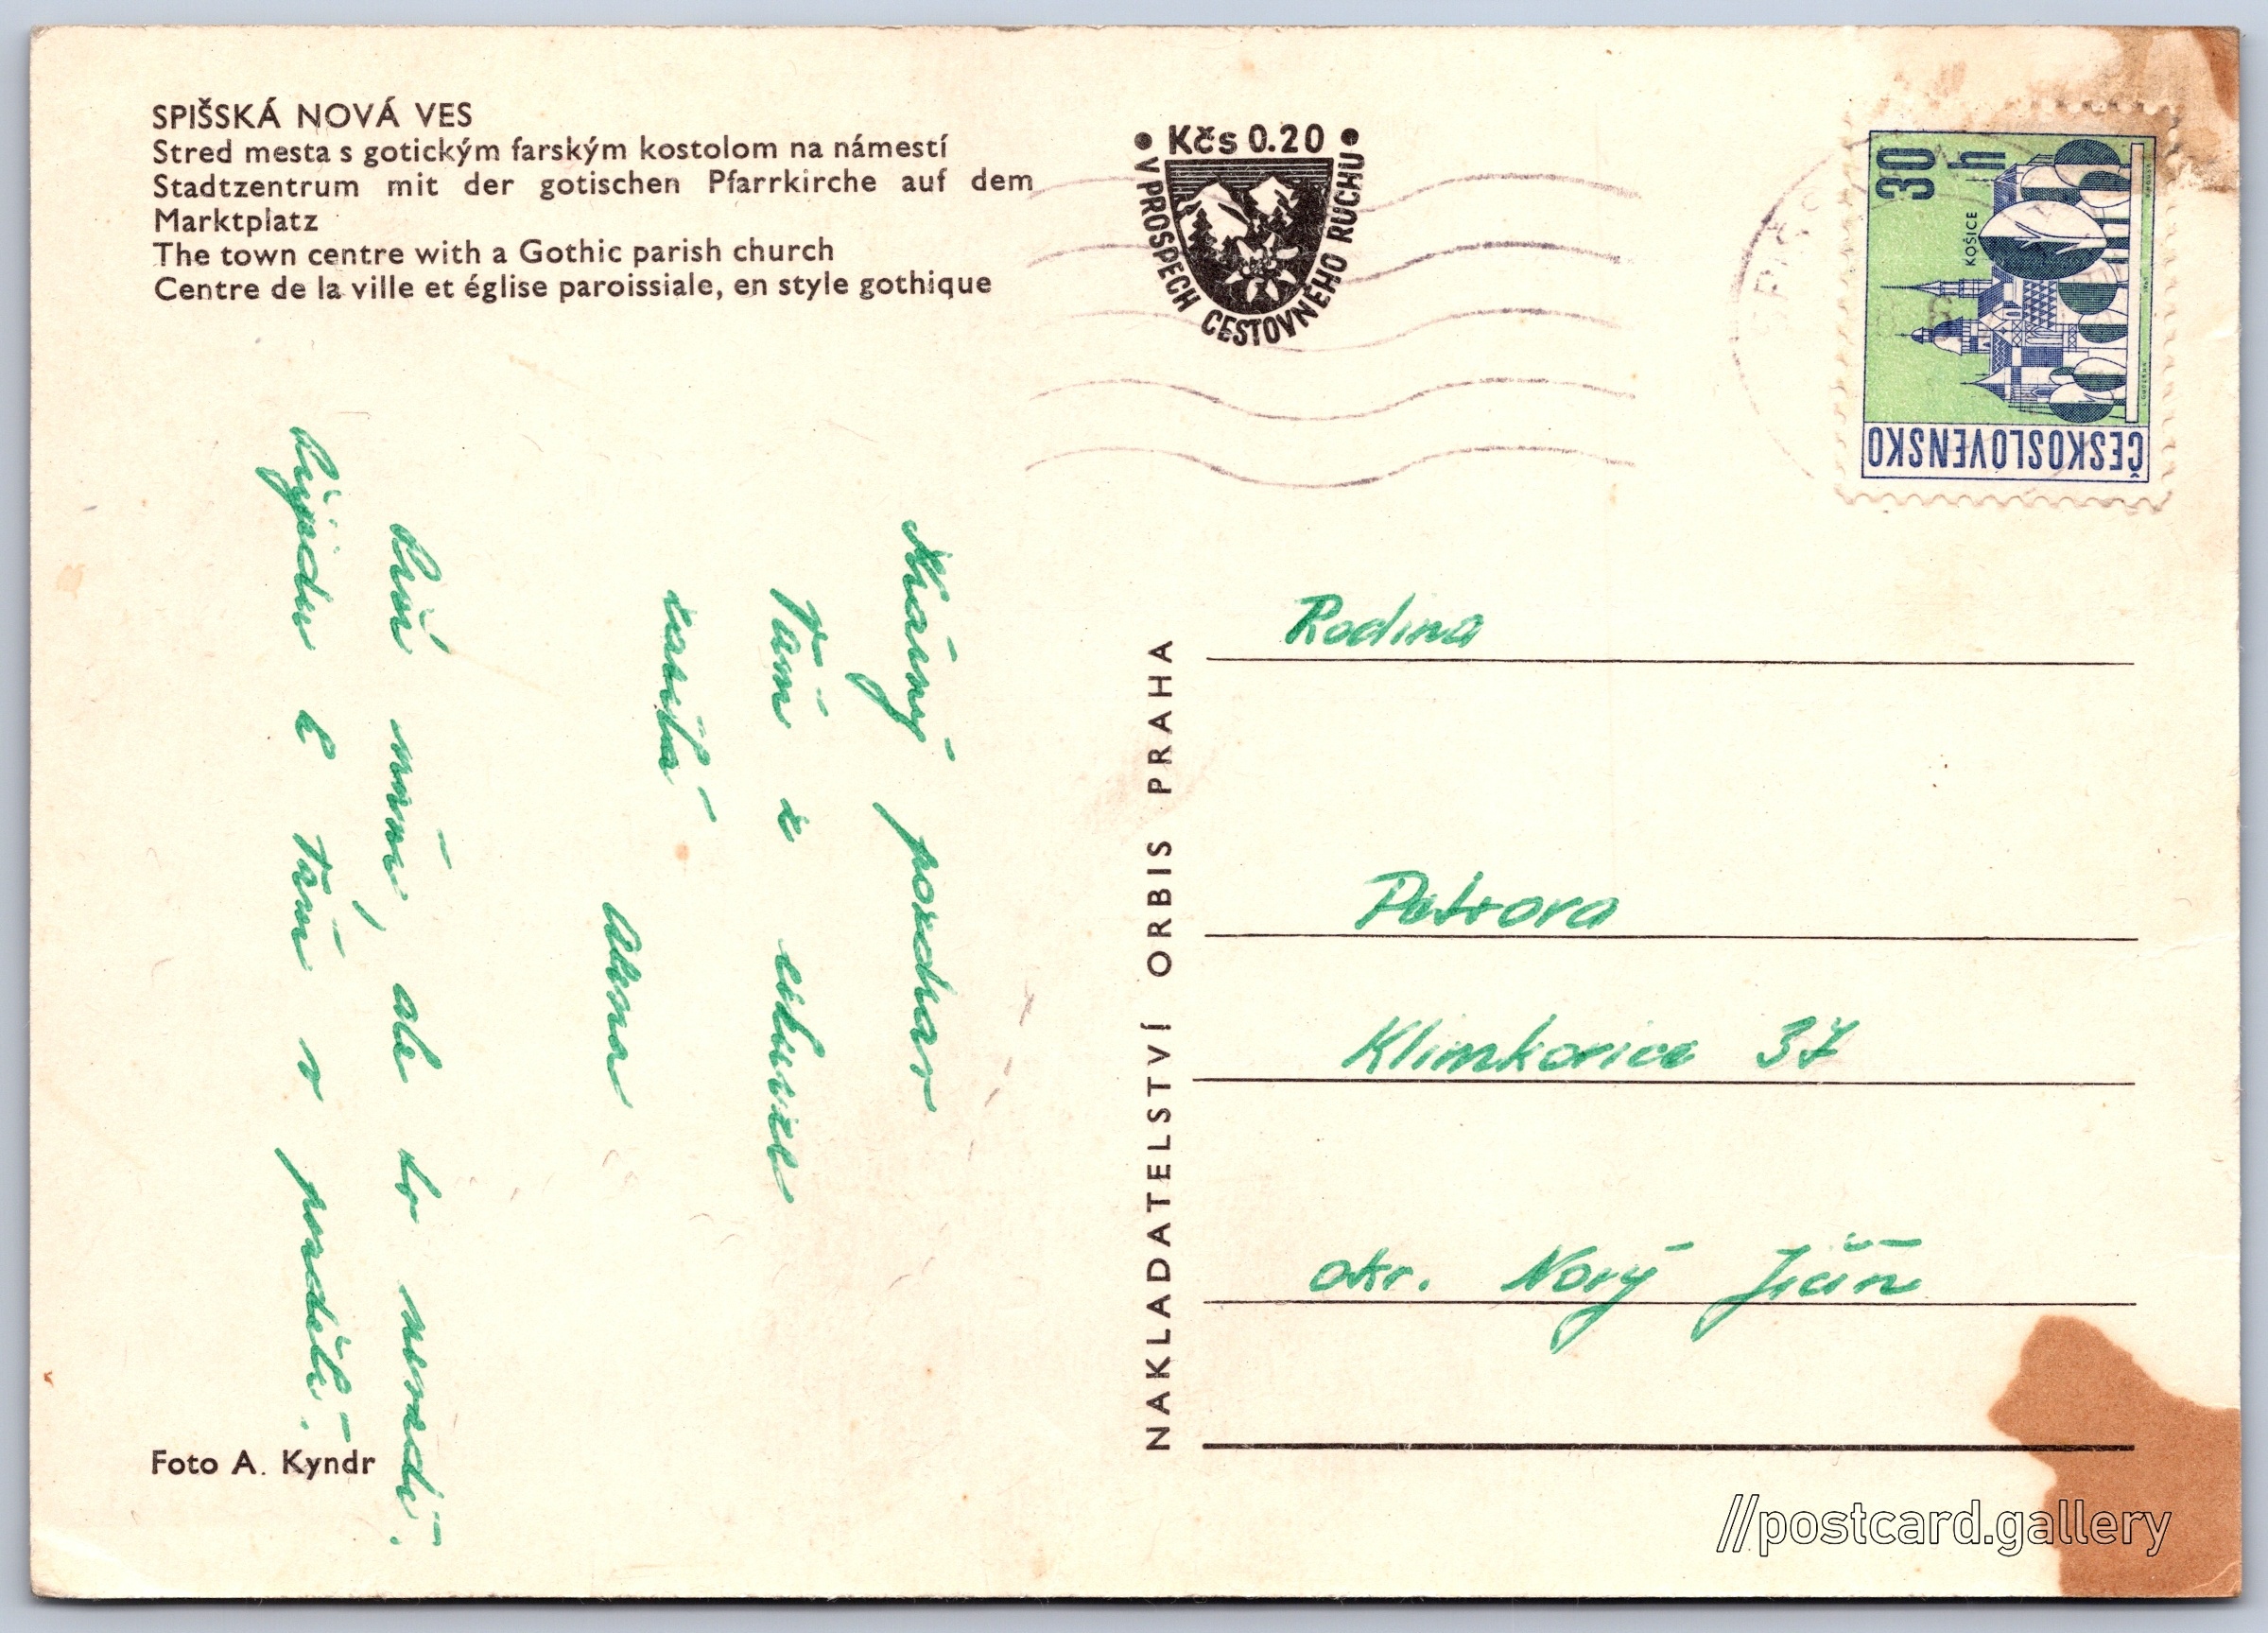 SPIŠSKÁ NOVÁ VES
Stred mesta s gotickým farským kostolom na námestí
Stadtzentrum mit der gotischen Pfarrkirche auf dem
Marktplatz
The town centre with a Gothic parish church
Centre de la ville et église paroissiale, en style gothique
Kčs 0.20
V PROSPECH CESTOVNÉHO RUCHU
30 h
KOŠICE
ČESKOSLOVENSKO
Krásný pozdrav
Vám z
zasílá
Alena
ale to nevadí.
k Vám v pondělí.
NAKLADATELSTVÍ ORBIS PRAHA
Rodina
Petrova
Klimkovice 37
okr. Nový Jičín
Foto A. Kyndr
//postcard.gallery